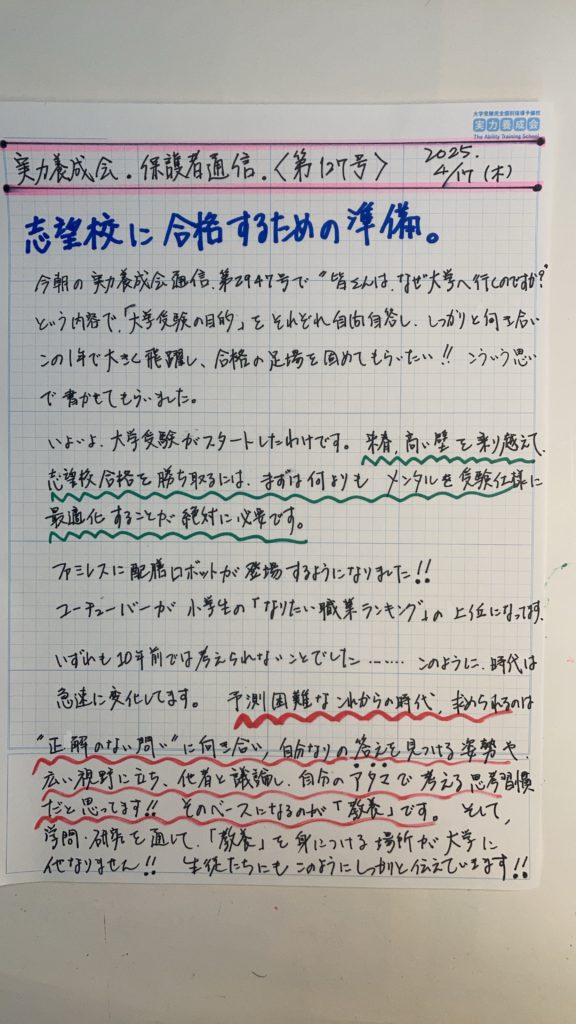 大学受験完全個別指導予備校
実力養成会
The Ability Training School
実力養成会.保護者通信.〈第127号〉
2025.
4/17(木)
志望校に合格するための準備。
今朝の実力養成会通信.第2947号で"皆さんは、なぜ大学へ行くのですか?"
という内容で、「大学受験の目的」をそれぞれ自問自答し、しっかりと向き合い
この1年で大きく飛躍し、合格の足場を固めてもらいたい!! こういう思い
で書かせてもらいました。
いよいよ、大学受験がスタートしたわけです。来春、高い壁を乗り越えて、
志望校合格を勝ち取るには、まずは何よりもメンタルを受験仕様に
最適化することが絶対に必要です。
ファミレスに配膳ロボットが登場するようになりました!!
ユーチューバーが小学生の「なりたい職業ランキング」の上位になってます、
いずれも10年前では考えられないことでした…… このように、時代は
急速に変化してます。 予測困難なこれからの時代、求められるのは
"正解のない問い"に向き合い、自分なりの答えを見つける姿勢や、
広い視野に立ち、他者と議論し、自分のアタマで考える思考習慣
だと思ってます!! そのベースになるのが「教養」です。 そして、
学問・研究を通して、「教養」を身につける場所が大学に
他なりません!! 生徒たちにもこのようにしっかりと伝えていきます!!